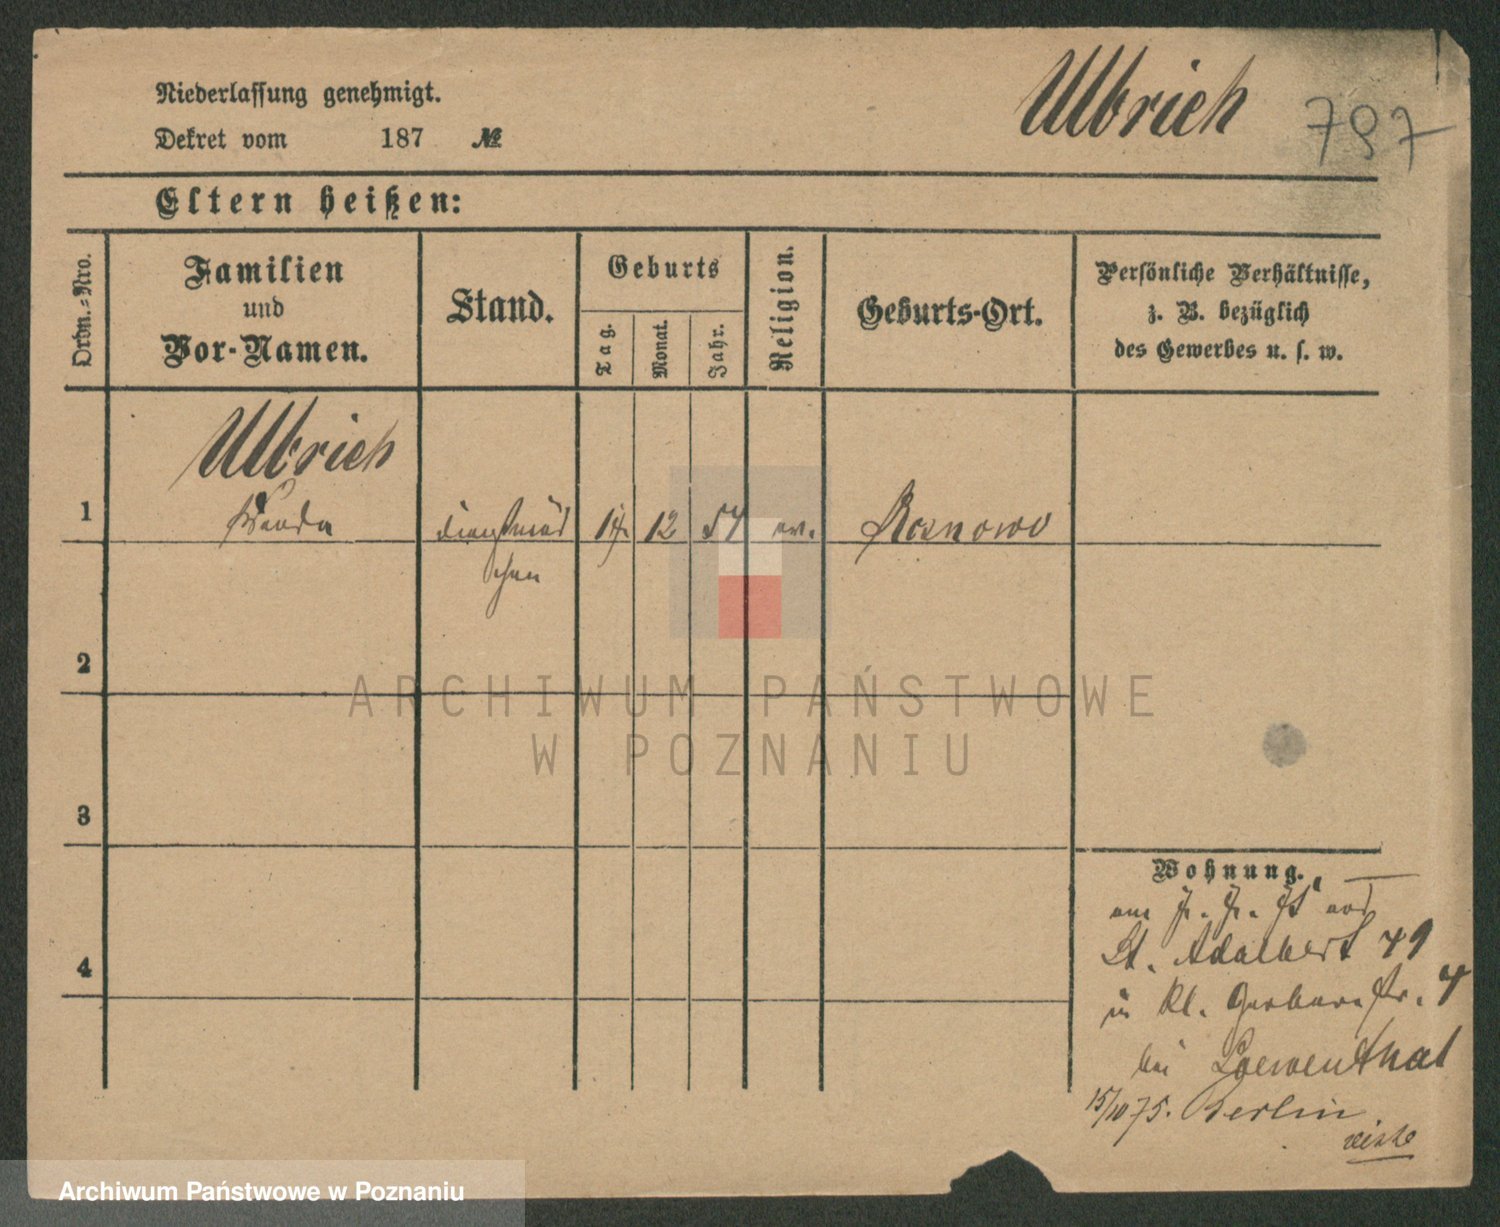 Niederlassung genehmigt.
Ulbrich
797
Dekret vom 187 №
Eltern heißen:
Ordn.-Nro.
Familien
und
Vor-Namen.
Stand.
Geburts
Tag.
Monat.
Jahr.
Religion.
Geburts-Ort.
Persönliche Verhältnisse,
z. B. bezüglich
des Gewerbes u. s. w.
Ulbrich
1 Wanda Dienstmäd 14. 12 54 ev. Rosnowo
chen
2
ARCHIWUM PAŃSTWOWE
W POZNANIU
3
Wohnung.
4
St. Adalbert 49
in Kl. Gerberstr. 4
bei Loewenthal
15/10 75. Berlin
Archiwum Państwowe w Poznaniu